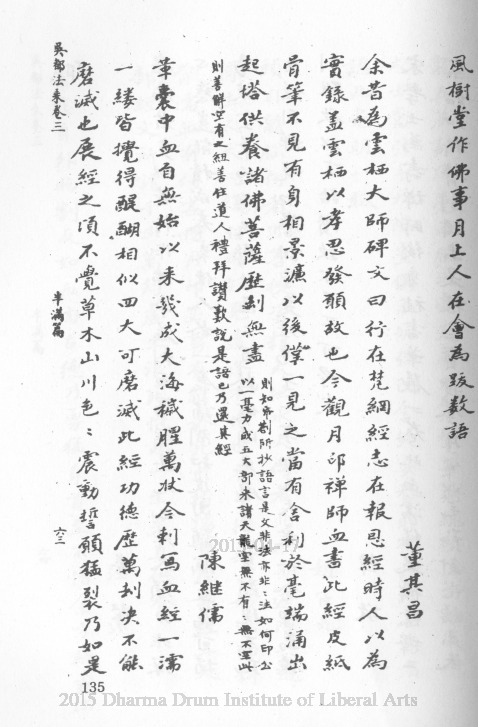 風樹堂作佛事月上人在會為跋数語
董其昌
余昔為雲栖大師碑文曰行在梵網經志在報恩經時人以為
實錄蓋雲栖以孝思發願故也今觀月印禅師血書此經皮紙
骨筆不見有身相景濂以後僅一見之當有舍利於毫端涌出
起塔供養諸佛菩薩歷刧無盡
則知帋劄所抄語言是文非法亦非非法如何印公
以一毫力成五大部来諸天龍空無不有
則善解空有之組善住道人禮拜讃歎説是語已乃還其經
陳継儒
革囊中血自無始以来幾成大海穢腥萬狀今刺寫血經一濡
一縷皆攪得醍醐相似四大可磨滅此經功德歷萬刧决不能
磨滅也展經之須不覺草木山川色〻震動誓願猛裂乃如是
吳都法乗卷三
半滿篇
六三
135
2015 Dharma Drum Institute of Liberal Arts